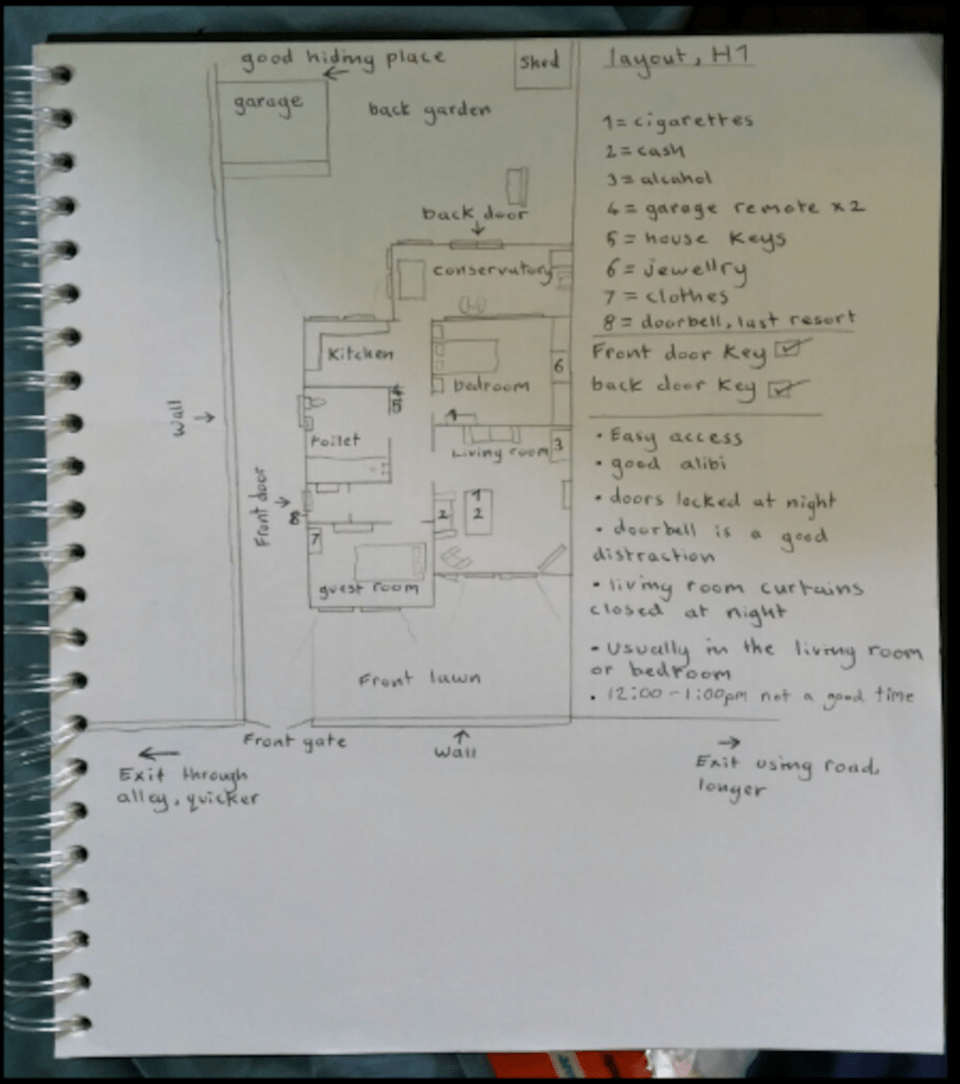 layout, H1
good hiding place
Shed
garage
back garden
1 = cigarettes
2 = cash
3 = alcahol
4 = garage remote x2
5 = house keys
6 = jewellry
7 = clothes
8 = doorbell, last resort
Front door key ☑
back door key ☑
• Easy access
• good alibi
• doors locked at night
• doorbell is a good
distraction
• living room curtains
closed at night
• Usually in the living room
or bedroom
• 12:00 - 1:00pm not a good time
back door
conservatory
Kitchen
bedroom
6
4
5
1
Wall
Toilet
Living room
3
Front door
8
1
2
2
7
guest room
Front lawn
Front gate
Wall
Exit through
alley, quicker
Exit using road,
longer